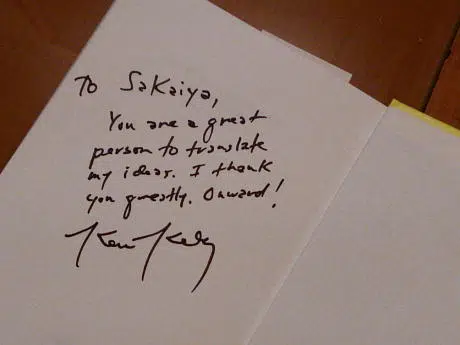 To Sakaiya,
You are a great
person to translate
my ideas. I thank
you greatly. Onward!